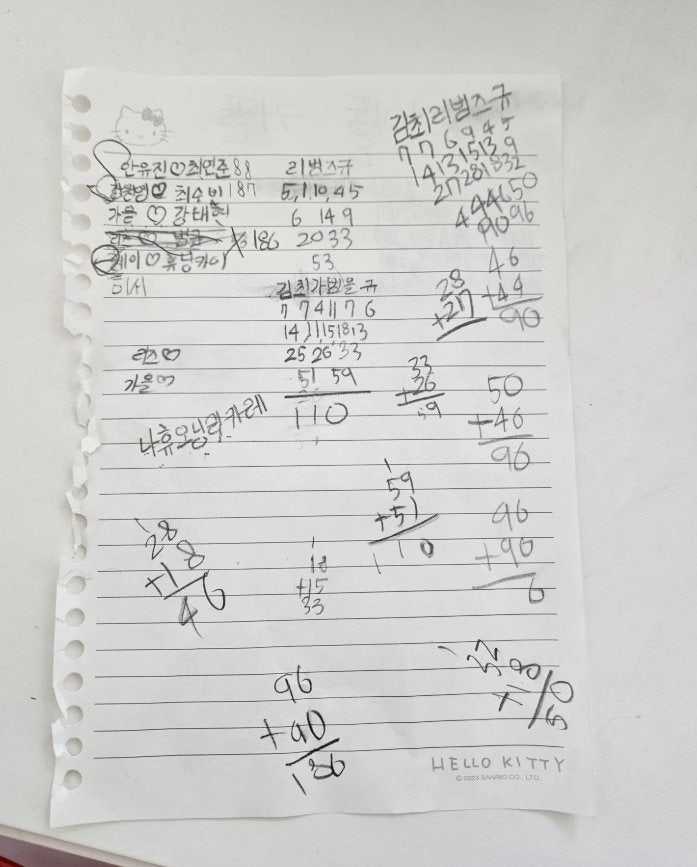 김최리범즈규
7 7 6 9 4 5
14 13 15 13 9
27 28 18 32
44 46 50
90 96
안유진♡최연준 88
♡ 최수빈 187
가을 ♡ 강태희
리즈 ♡ 범규 186
레이♡휴닝카이
리범즈규
5, 1, 10, 4 5
6 14 9
20 33
53
김최가범을규
7 7 4 11 7 6
14 11 15 18 13
25 26 33
51 59
110
리즈♡
가을♡
나휴오닝리카레
28
+217
46
+49
90
33
+26
59
50
+46
96
1
59
+51
110
96
+96
6
28
+18
46
1
18
+15
33
32
+18
50
96
+90
186
HELLO KITTY
© 2023 SANRIO CO., LTD.